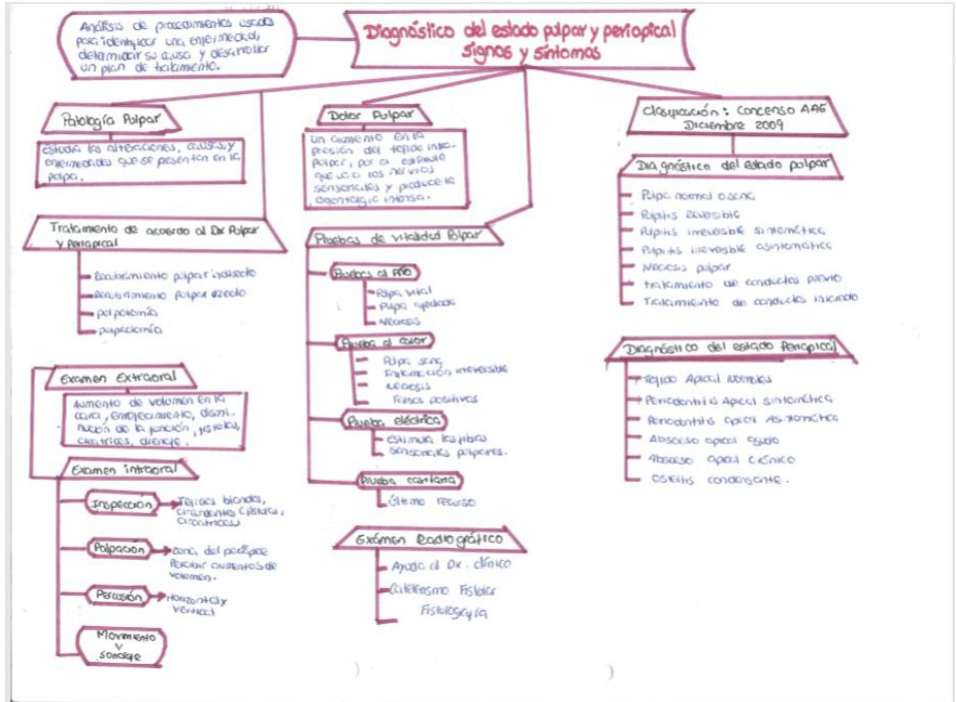 Análisis de procedimientos usados
para identificar una enfermedad,
determinar su causa y desarrollar
un plan de tratamiento.
Diagnóstico del estado pulpar y periapical
signos y síntomas
Patología Pulpar
Estudia las alteraciones, causas y
enfermedades que se presentan en la
pulpa.
Tratamiento de acuerdo al Dx Pulpar
y Periapical
Recubrimiento pulpar indirecto
Recubrimiento pulpar directo
pulpotomía
pulpectomía
Examen Extraoral
Aumento de volumen en la
cara, enrojecimiento, dismi-
nución de la función, fístulas,
cicatrices, drenaje.
Examen intraoral
Inspección
Tejidos blandos,
fístulas,
cicatrices
Palpación
zona del periápice
Percibir aumentos de
volumen.
Percusión
Horizontal y
vertical
Movimiento
y
sondaje
Dolor Pulpar
Un aumento en la
presión del tejido intra-
pulpar, por el estímulo
que va a los nervios
sensoriales y produce la
odontalgia intensa.
Pruebas de vitalidad Pulpar
Pruebas al frío
Pulpa vital
Pulpa
Necrosis
Prueba al calor
Pulpa sana
Inflamación irreversible
Necrosis
Falsos positivos
Prueba eléctrica
Estimula las fibras
sensoriales pulpares.
Prueba cavitaria
Último recurso
Exámen Radiográfico
Ayuda al Dx. clínico
Fistular
Clasificación: Concenso AAE
Diciembre 2009
Diagnóstico del estado pulpar
Pulpa normal o sana
Pulpitis Reversible
Pulpitis irreversible sintomática
Pulpitis irreversible asintomática
Necrosis pulpar
tratamiento de conductos previo
Tratamiento de conductos iniciado
Diagnóstico del estado Periapical
Tejido Apical Normales
Periodontitis Apical sintomática
Periodontitis apical Asintomática
Absceso apical agudo
Absceso apical crónico
Osteitis condensante.